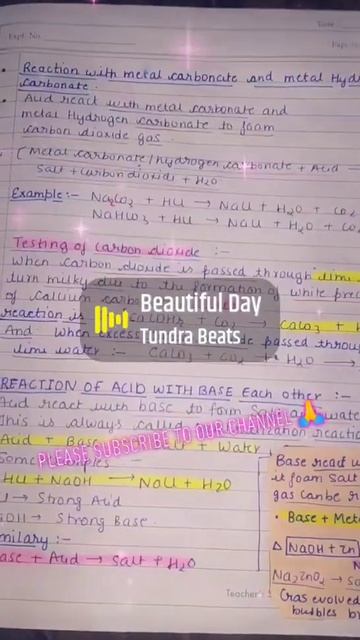 Time
Expt. No.
Reaction with metal carbonate and metal Hyd
carbonate.
Acid react with metal carbonate and
metal Hydrogen carbonate to foam
carbon dioxide gas.
[Metal carbonate/hydrogen carbonate + Acid →
Salt + carbon dioxide + H2O
Example:- Na2CO3 + HCl → NaCl + H2O + CO2
NaHCO3 + HCl → NaCl + H2O + CO
Testing of carbon dioxide :-
When carbon dioxide is passed through lime
turn milky due to the formation of white prec
of calcium carb
reaction is Ca(OH)2 + CO2 → CaCO3 + H
And when excess passed throu
lime water :- CaCO3 + CO2 + H2O →
Beautiful Day
Tundra Beats
REACTION OF ACID WITH BASE Each other :-
Acid react with base to form Salt water
This is always called reactio
Acid + Base Salt + Water
PLEASE SUBSCRIBE TO OUR CHANNEL 🙏
Some
HCl + NaOH → NaCl + H2O
→ Strong Acid
→ Strong Base.
milary :-
ase + Acid → Salt + H2O
Base react
it foam Salt
gas can be
• Base + Met
Δ NaOH + Zn
Na2ZnO2 →
Gas evolved
bubbles
Teacher's